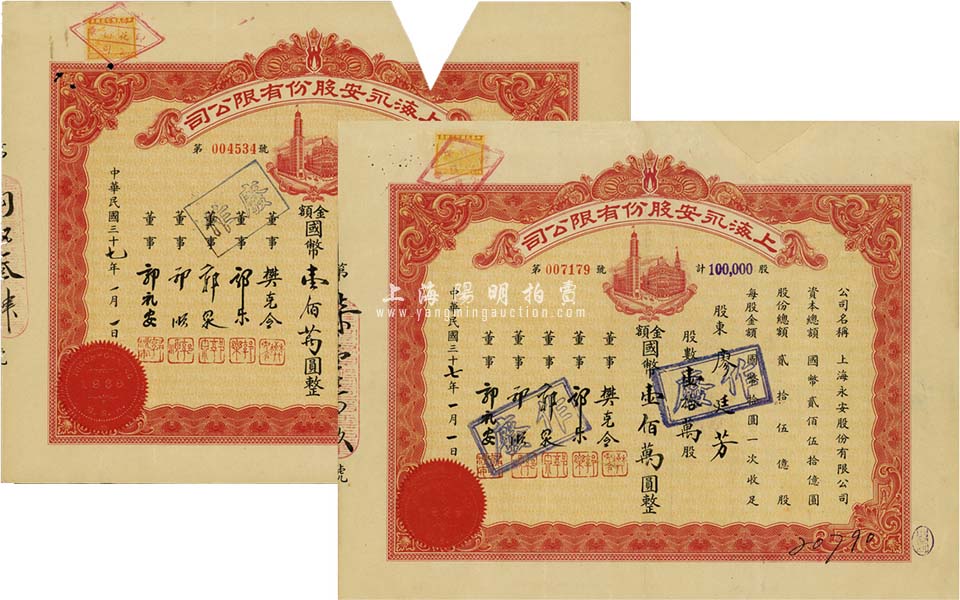 上海永安股份有限公司
第 004534 號
金額國幣壹佰萬圓整
董事 樊克令
董事
董事 郭泉
董事
董事 郭禮安
中華民國三十七年一月一日
作廢
上海永安股份有限公司
第 007179 號
計 100,000 股
公司名稱 上海永安股份有限公司
資本總額 國幣貳佰伍拾億圓
股份總額 貳拾伍億股
每股金額 國幣拾圓一次收足
股東 廖廷芳
股數 壹拾萬股
金額國幣壹佰萬圓整
董事 樊克令
董事
董事 郭泉
董事
董事 郭禮安
中華民國三十七年一月一日
作廢
作廢
20790
上海陽明拍賣
www.yangmingauction.com